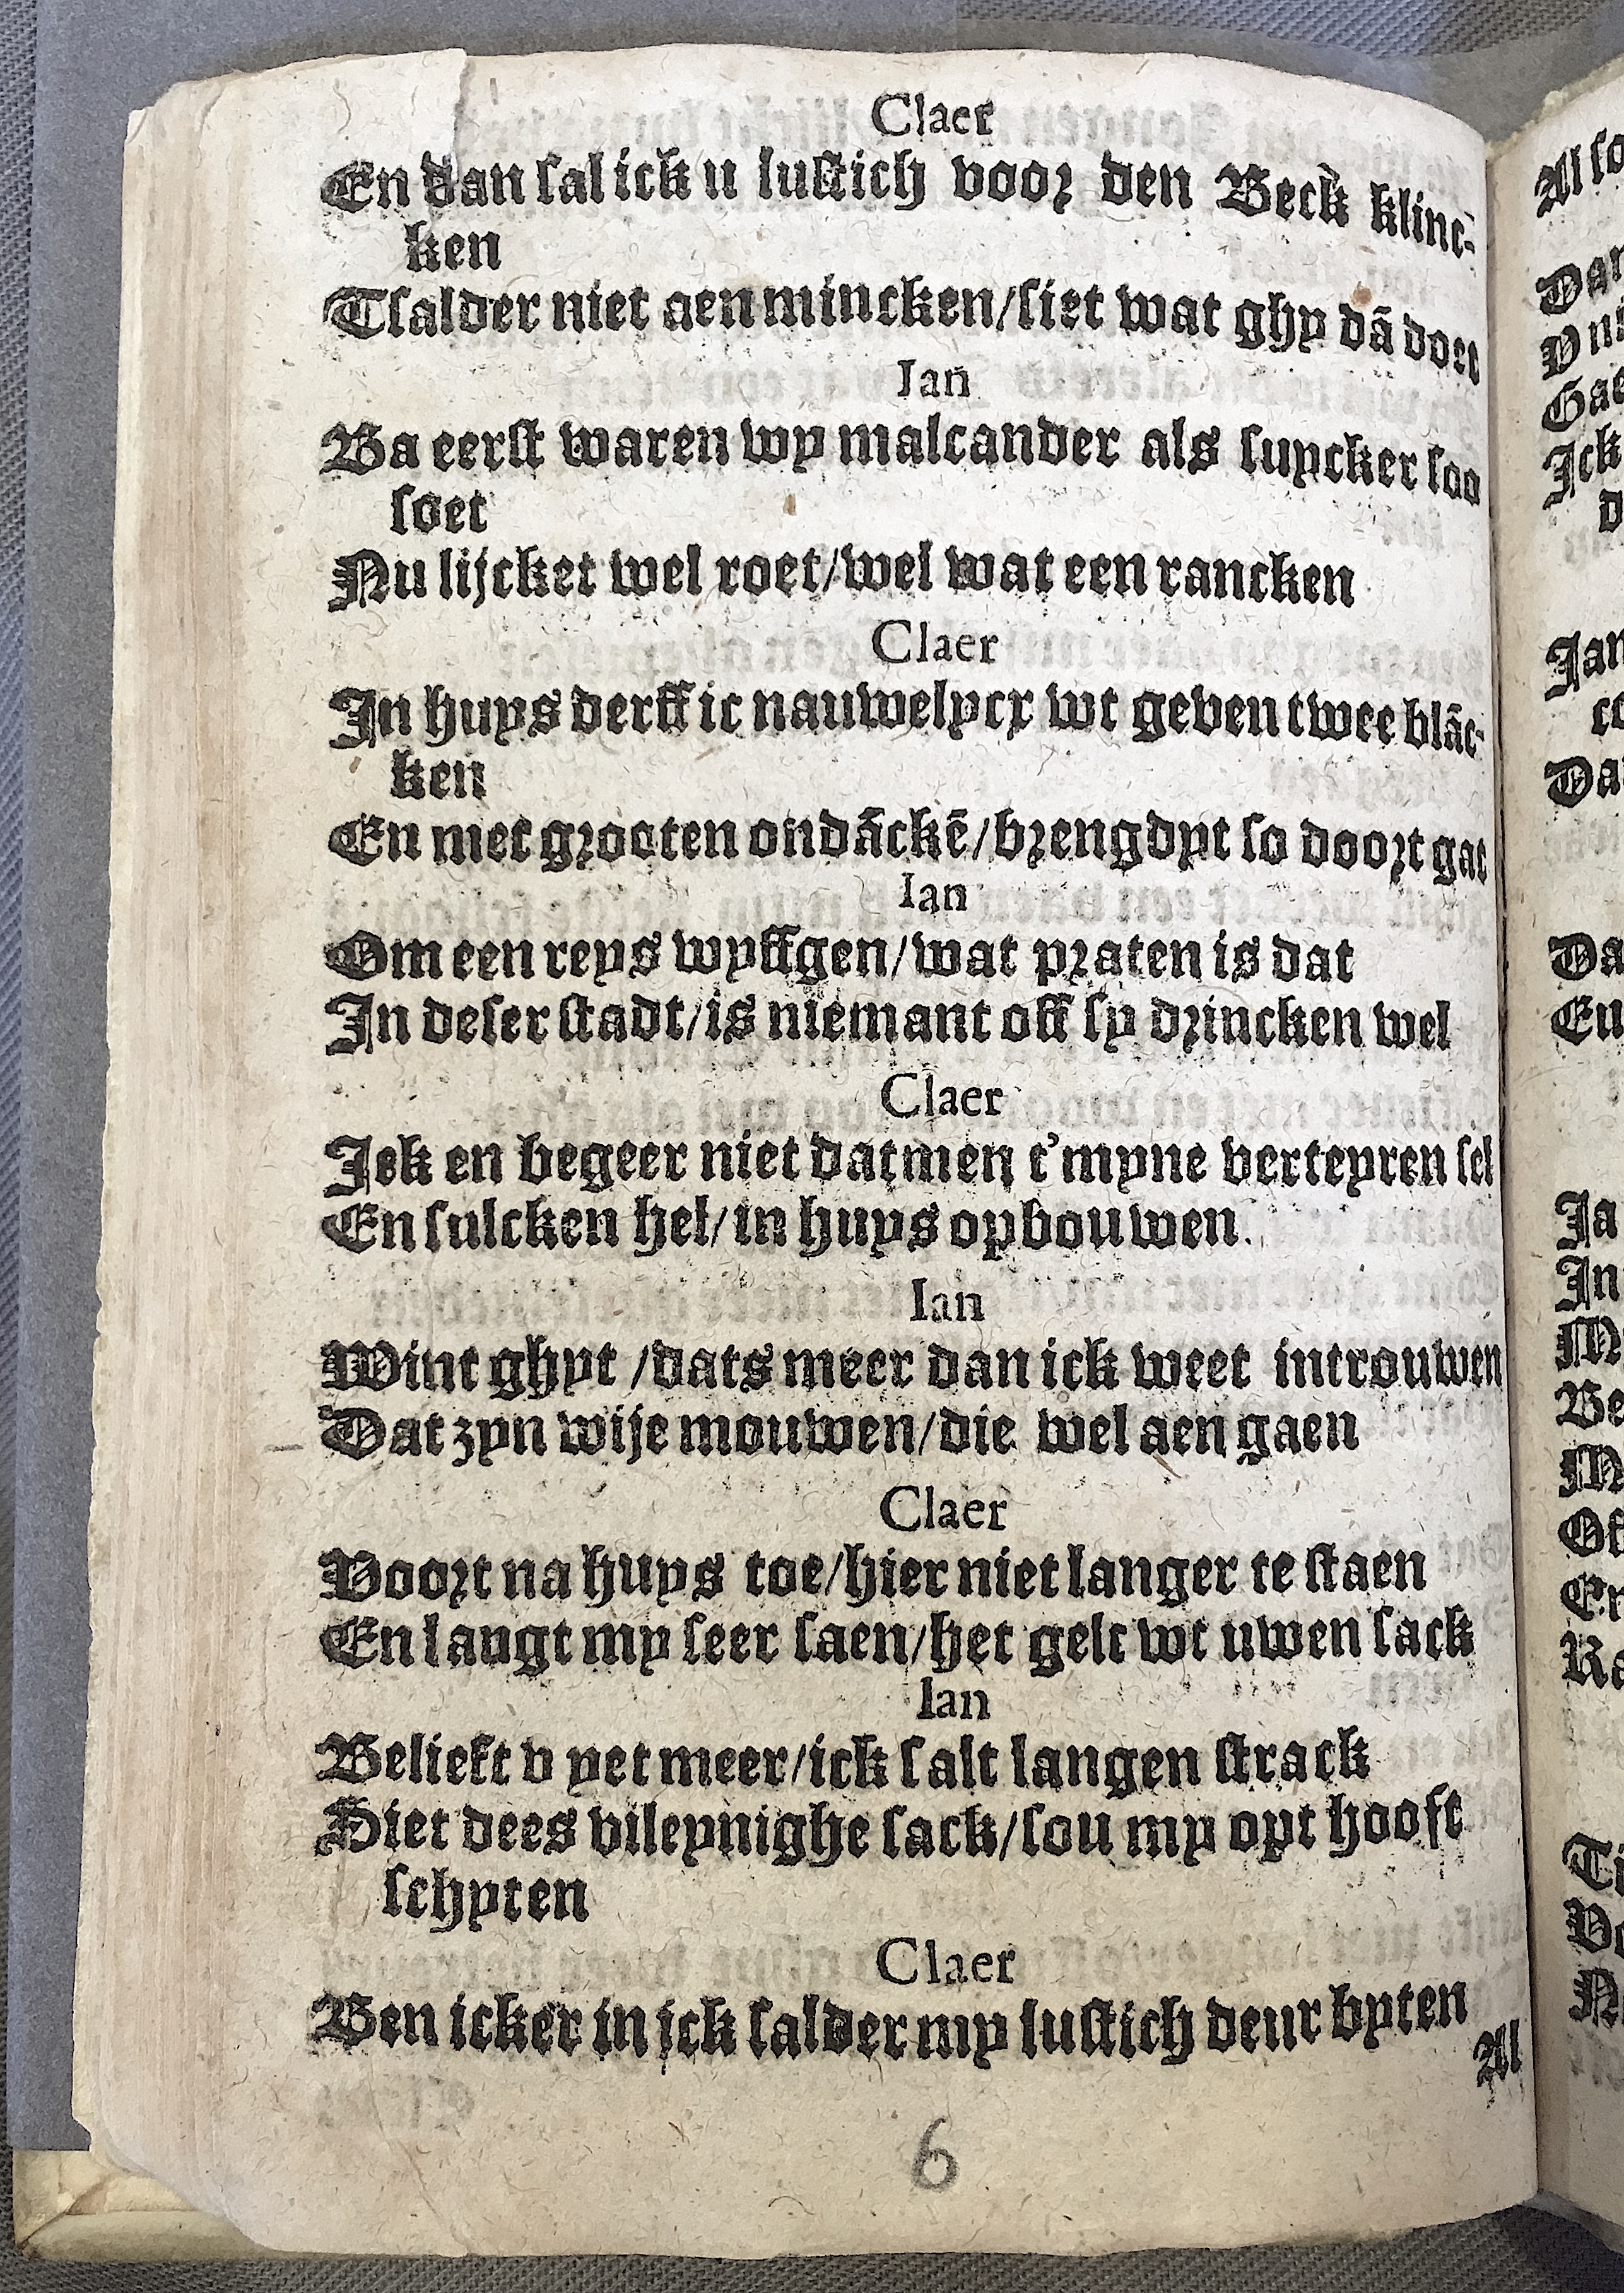 Claer
En dan sal ick u lustich voor den Beck klinc-
ken
Tsalder niet aen mincken/siet wat ghy dā doet
Ian
Ba eerst waren wy malcander als suycker soo
soet
Nu lijcket wel roet/wel wat een rancken
Claer
In huys derff ic nauwelycx wt geven twee blāc-
ken
En met grooten ondāckē/brengdyt so doort gat
Ian
Om een reys wyffgen/wat praten is dat
In deser stadt/is niemant off sy drincken wel
Claer
Ick en begeer niet datmen t'myne verteyren sel
En sulcken hel/in huys opbouwen.
Ian
Wint ghyt /dats meer dan ick weet introuwen
Dat zyn wije mouwen/die wel aen gaen
Claer
Voort na huys toe/hier niet langer te staen
En langt my seer saen/het gelt wt uwen sack
Ian
Belieft v yet meer/ick salt langen strack
Siet dees vileynighe sack/sou my opt hooft
schyten
Claer
Ben icker in ick salder my lustich deur byten
Al
6
Al so
Dar
Gae
Ick
d
Jan
co
Da
Da
En
Ja
In
Be
Of
En
Ra
Ti
Vo